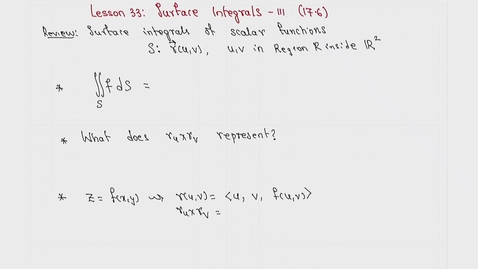 Lesson 33: Surface Integrals - III (17.6)
Review: Surface integrals of scalar functions
S: r⃗(u,v), u,v in Region R inside ℝ²
* ∬_S f dS =
* What does r_u x r_v represent?
* z = f(x,y) ⇝ r(u,v) = ⟨u, v, f(u,v)⟩
r_u x r_v =